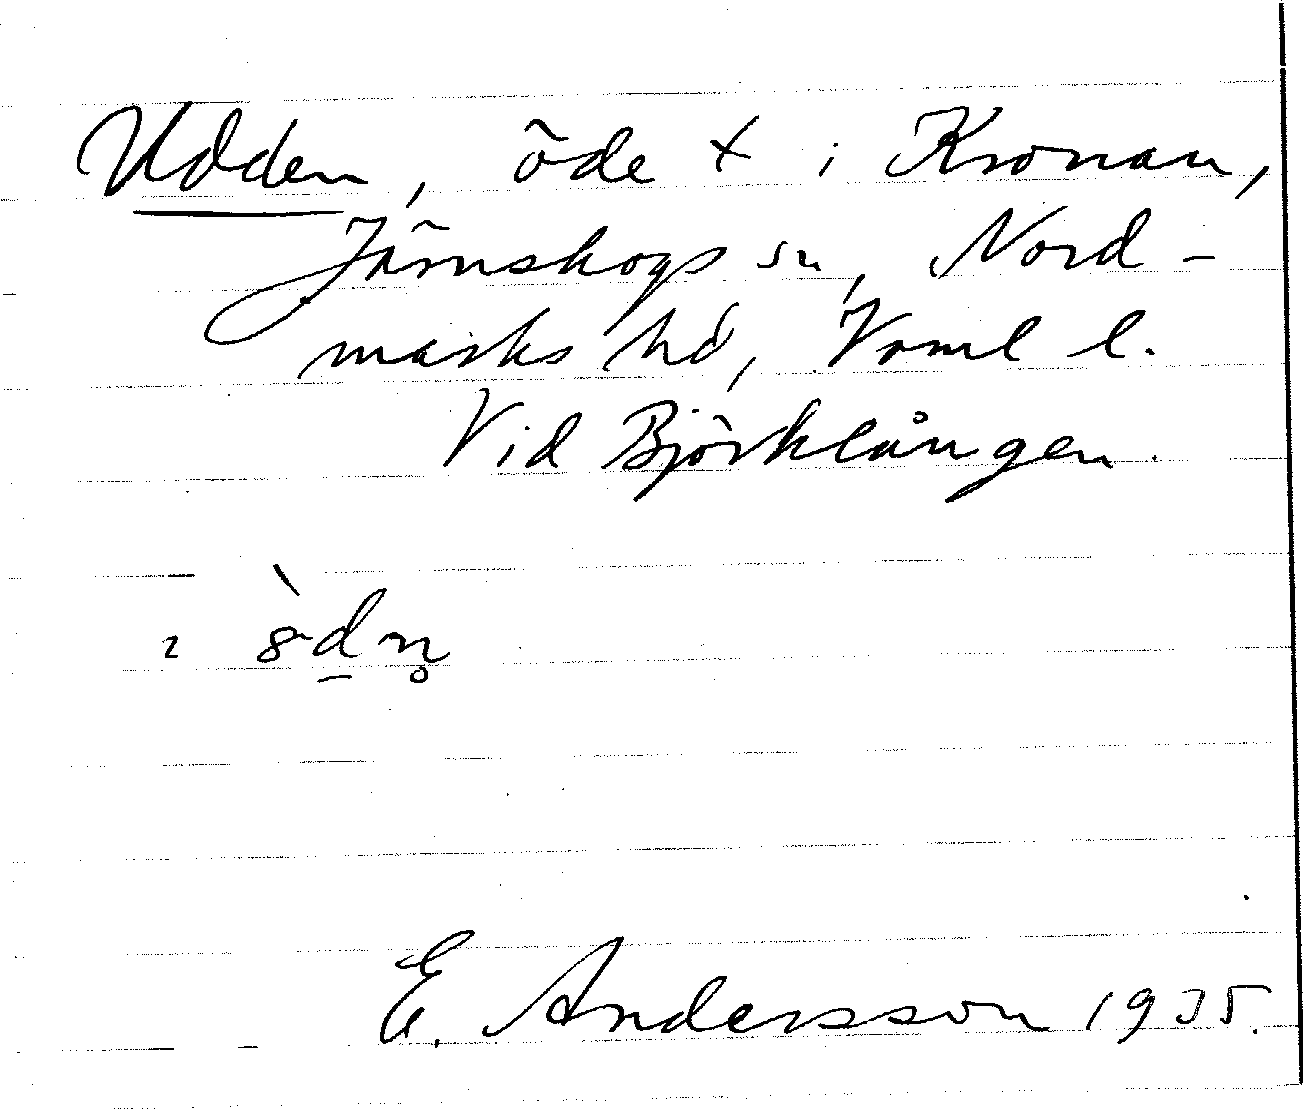 Udden, öde + i Kronan,
Järnskogs sn, Nord-
marks hd, Vrml l.
Vid Björklången.
2 8̀d̲n̥
E. Andersson 1935.